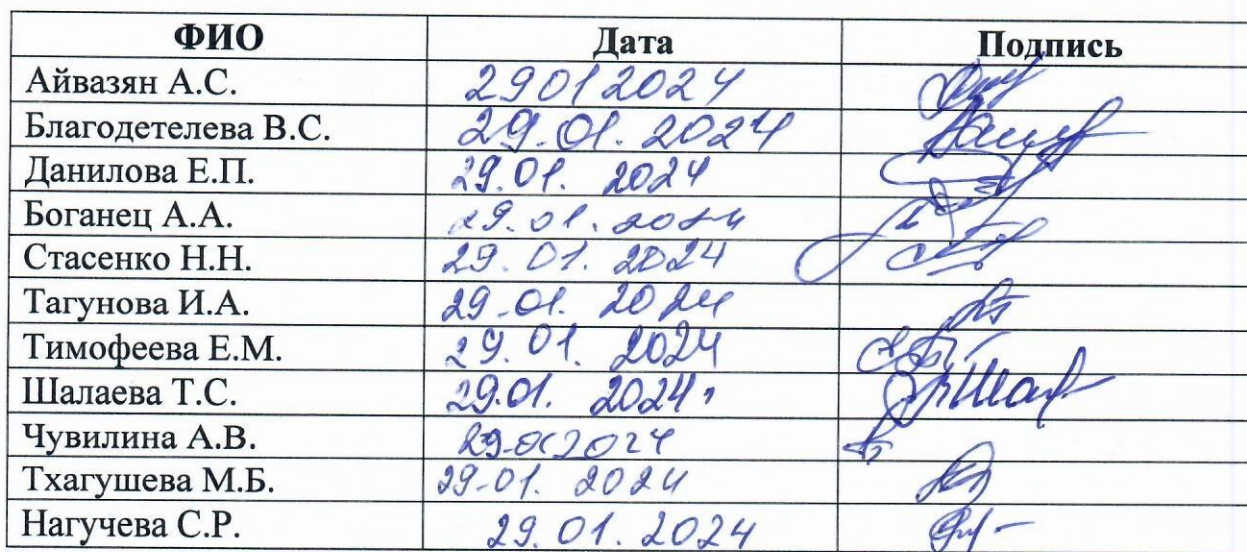 ФИО Дата Подпись
Айвазян А.С. 29012024
Благодетелева В.С. 29.01.2024
Данилова Е.П. 29.01. 2024
Боганец А.А. 29.01.2024
Стасенко Н.Н. 29.01.2024
Тагунова И.А. 29.01.2024
Тимофеева Е.М. 29.01.2024
Шалаева Т.С. 29.01.2024
Чувилина А.В. 29.012024
Тхагушева М.Б. 29-01.2024
Нагучева С.Р. 29.01.2024